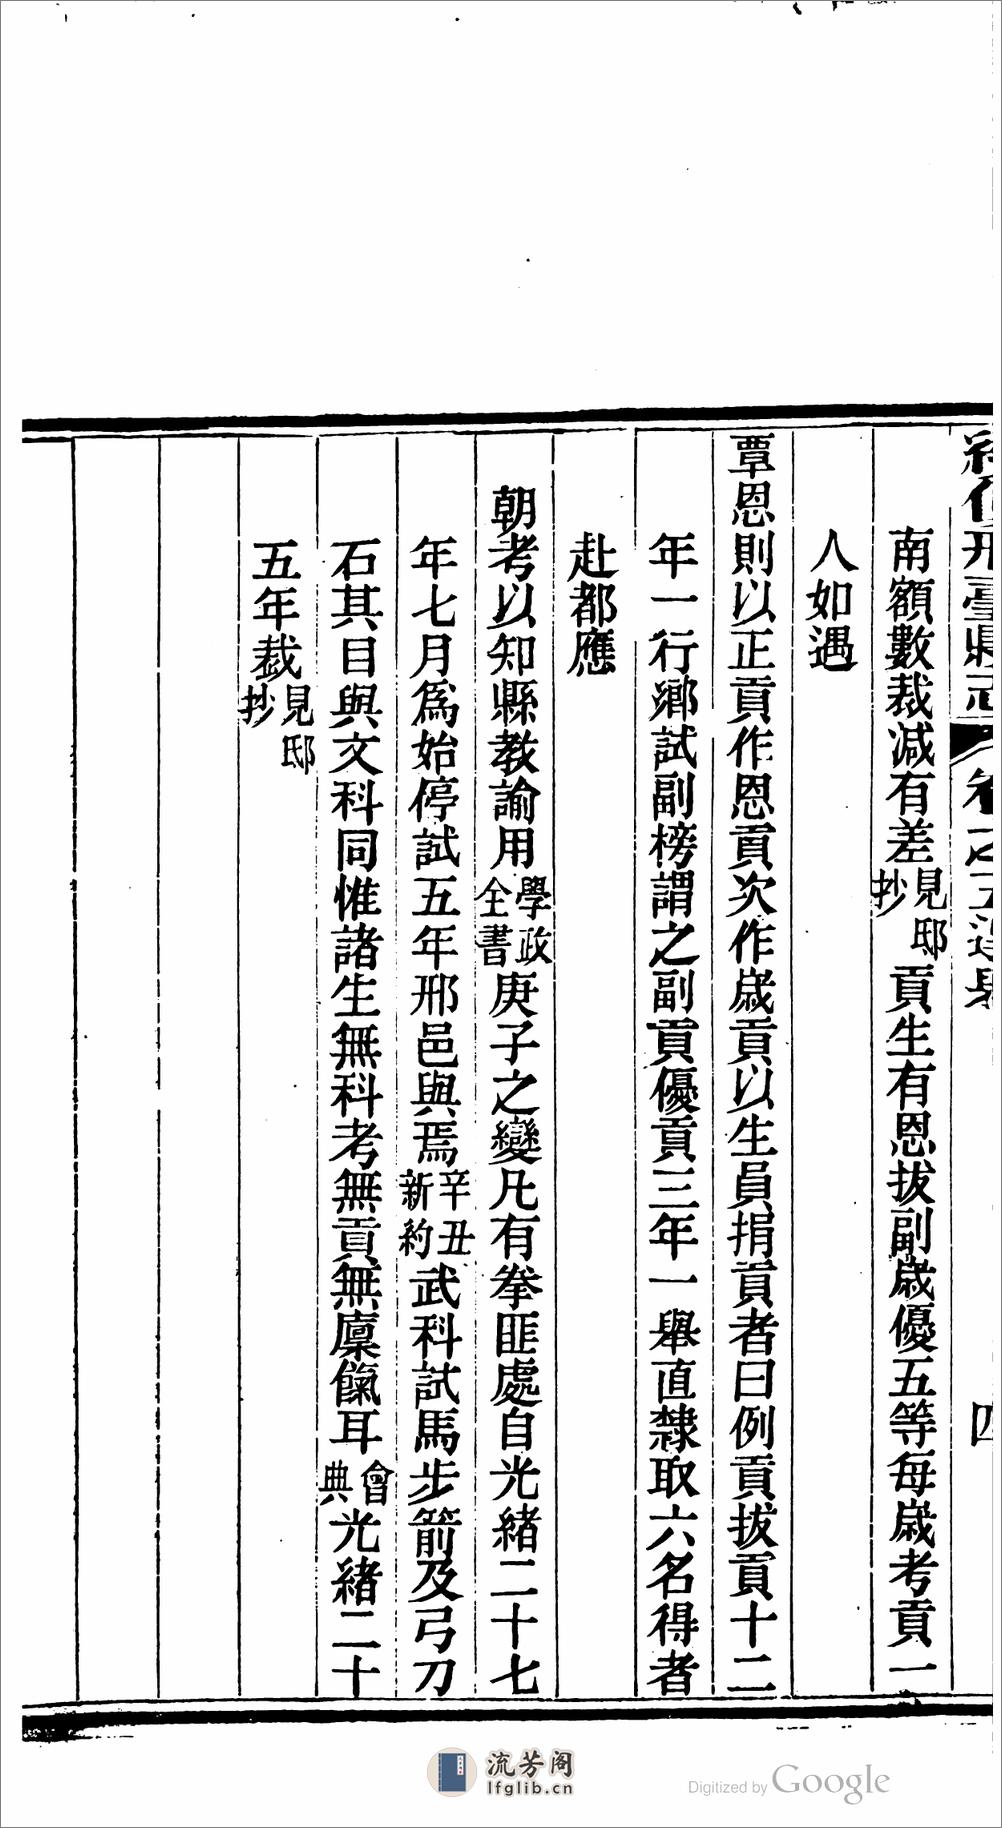 邢臺縣志 卷之五選舉 四
南額數裁減有差見邸抄貢生有恩拔副歲優五等每歲考貢一
人如遇
覃恩則以正貢作恩貢次作歲貢以生員捐貢者曰例貢拔貢十二
年一行鄉試副榜謂之副貢優貢三年一舉直隸取六名得者
赴都應
朝考以知縣教諭用學政全書庚子之變凡有拳匪處自光緒二十七
年七月為始停試五年邢邑與焉辛丑新約武科試馬步箭及弓刀
石其目與文科同惟諸生無科考無貢無廩餼耳會典光緒二十
五年裁見邸抄
流芳阁
lfglib.cn
Digitized by Google